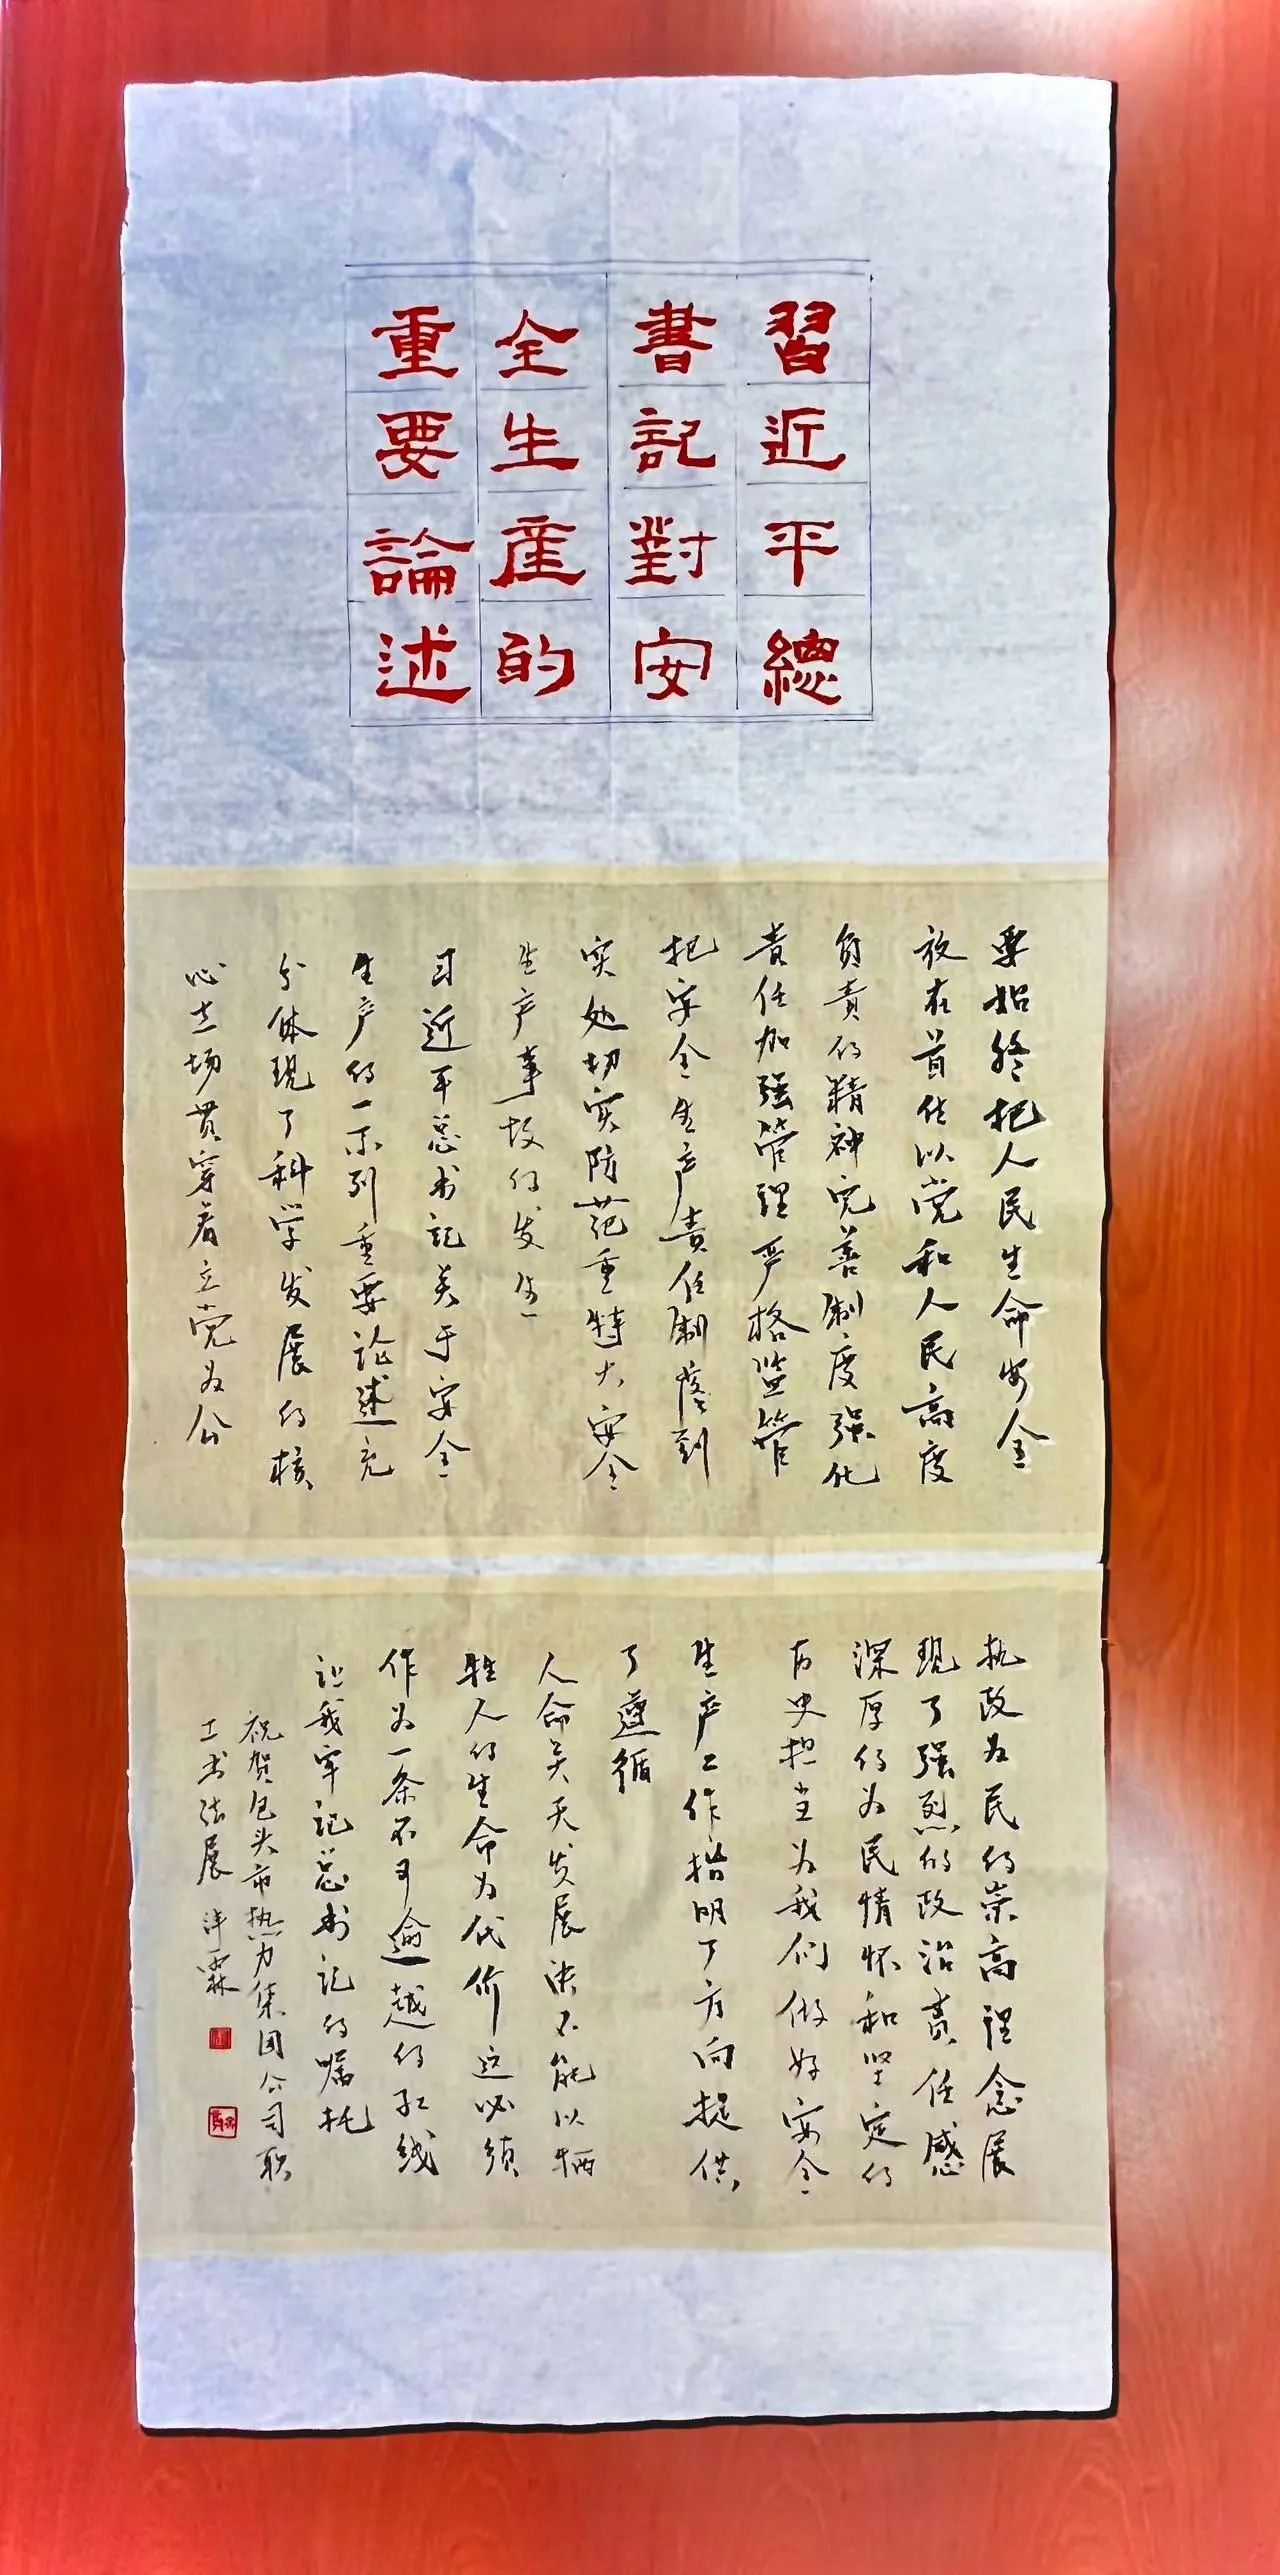 習近平總
書記對安
全生產的
重要論述
要始终把人民生命安全
放在首位以党和人民高度
负责的精神完善制度强化
责任加强管理严格监管
把安全生产责任制落到
实处切实防范重特大安全
生产事故的发生
习近平总书记关于安全
生产的一系列重要论述充
分体现了科学发展的核
心立场贯穿着立党为公
执政为民的崇高理念展
现了强烈的政治责任感
深厚的为民情怀和坚定的
历史担当为我们做好安全
生产工作指明了方向提供
了遵循
人命关天发展决不能以牺
牲人的生命为代价这必须
作为一条不可逾越的红线
让我牢记总书记的嘱托
祝贺包头市热力集团公司职
工书法展 泽霖